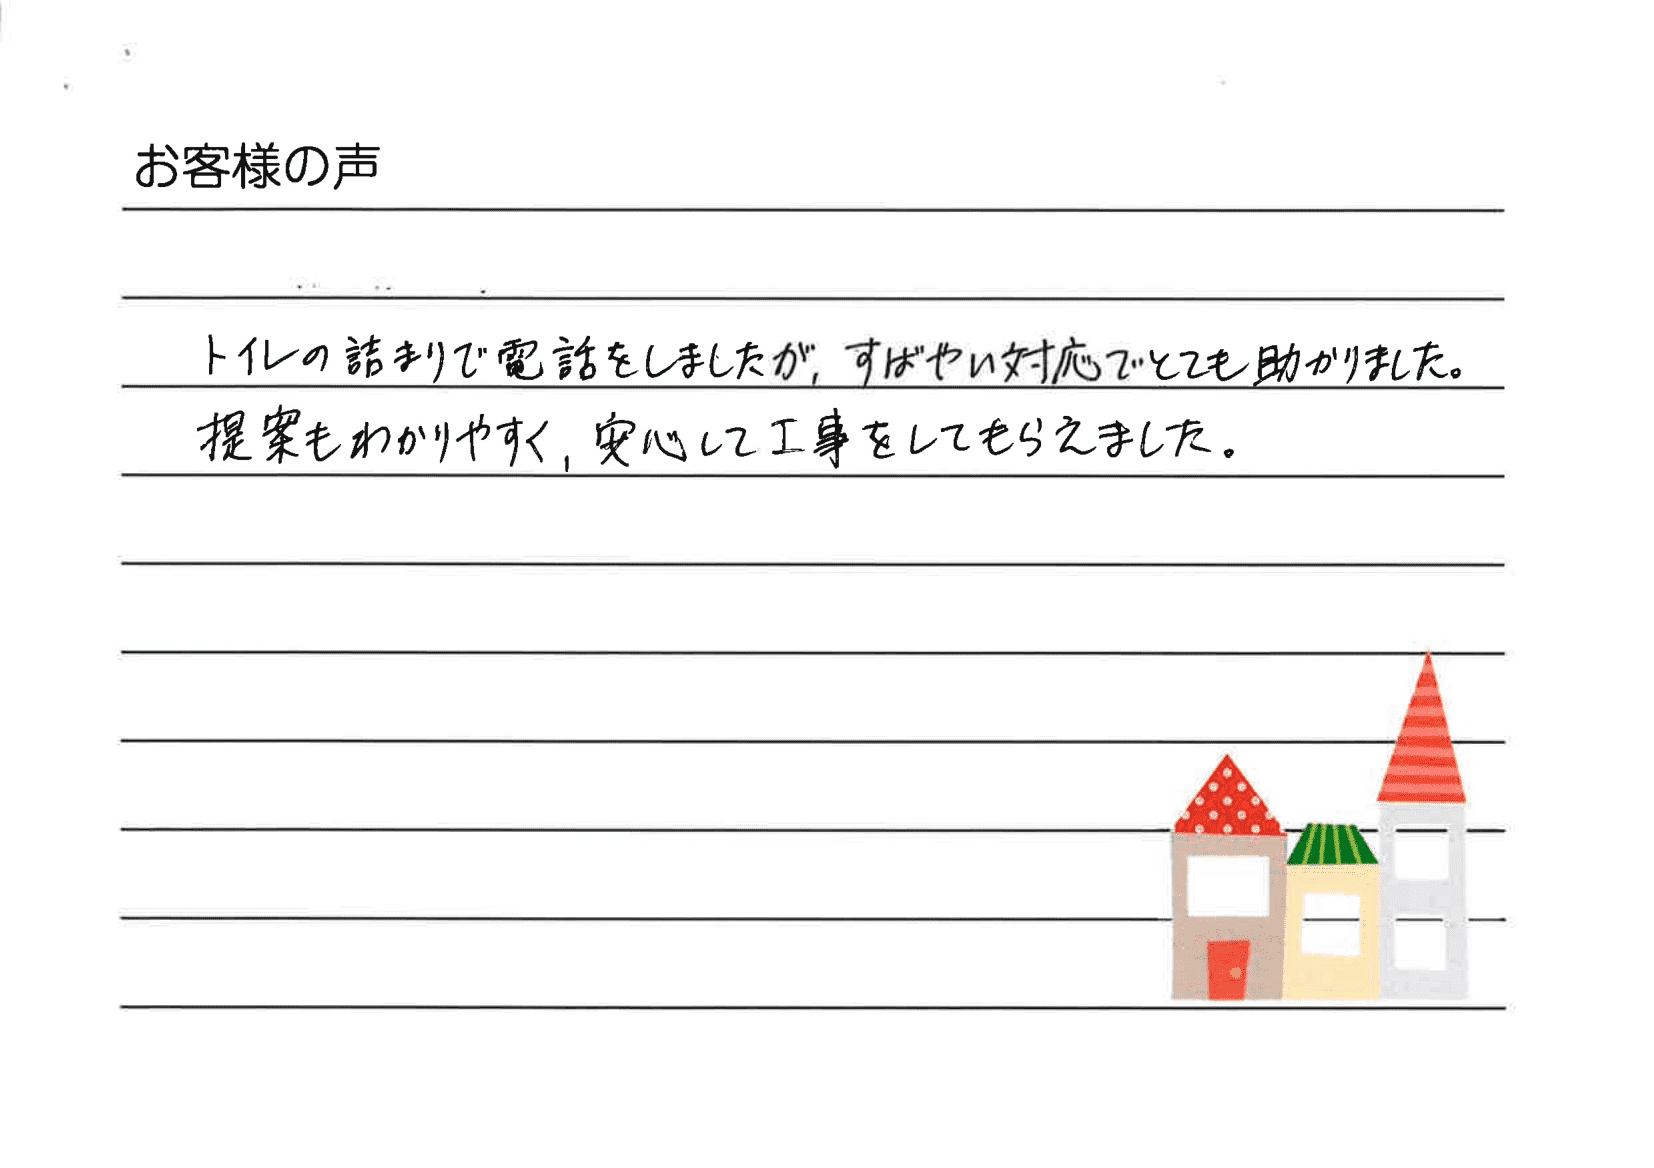 お客様の声
トイレの詰まりで電話をしましたが、すばやい対応でとても助かりました。
提案もわかりやすく、安心して工事をしてもらえました。